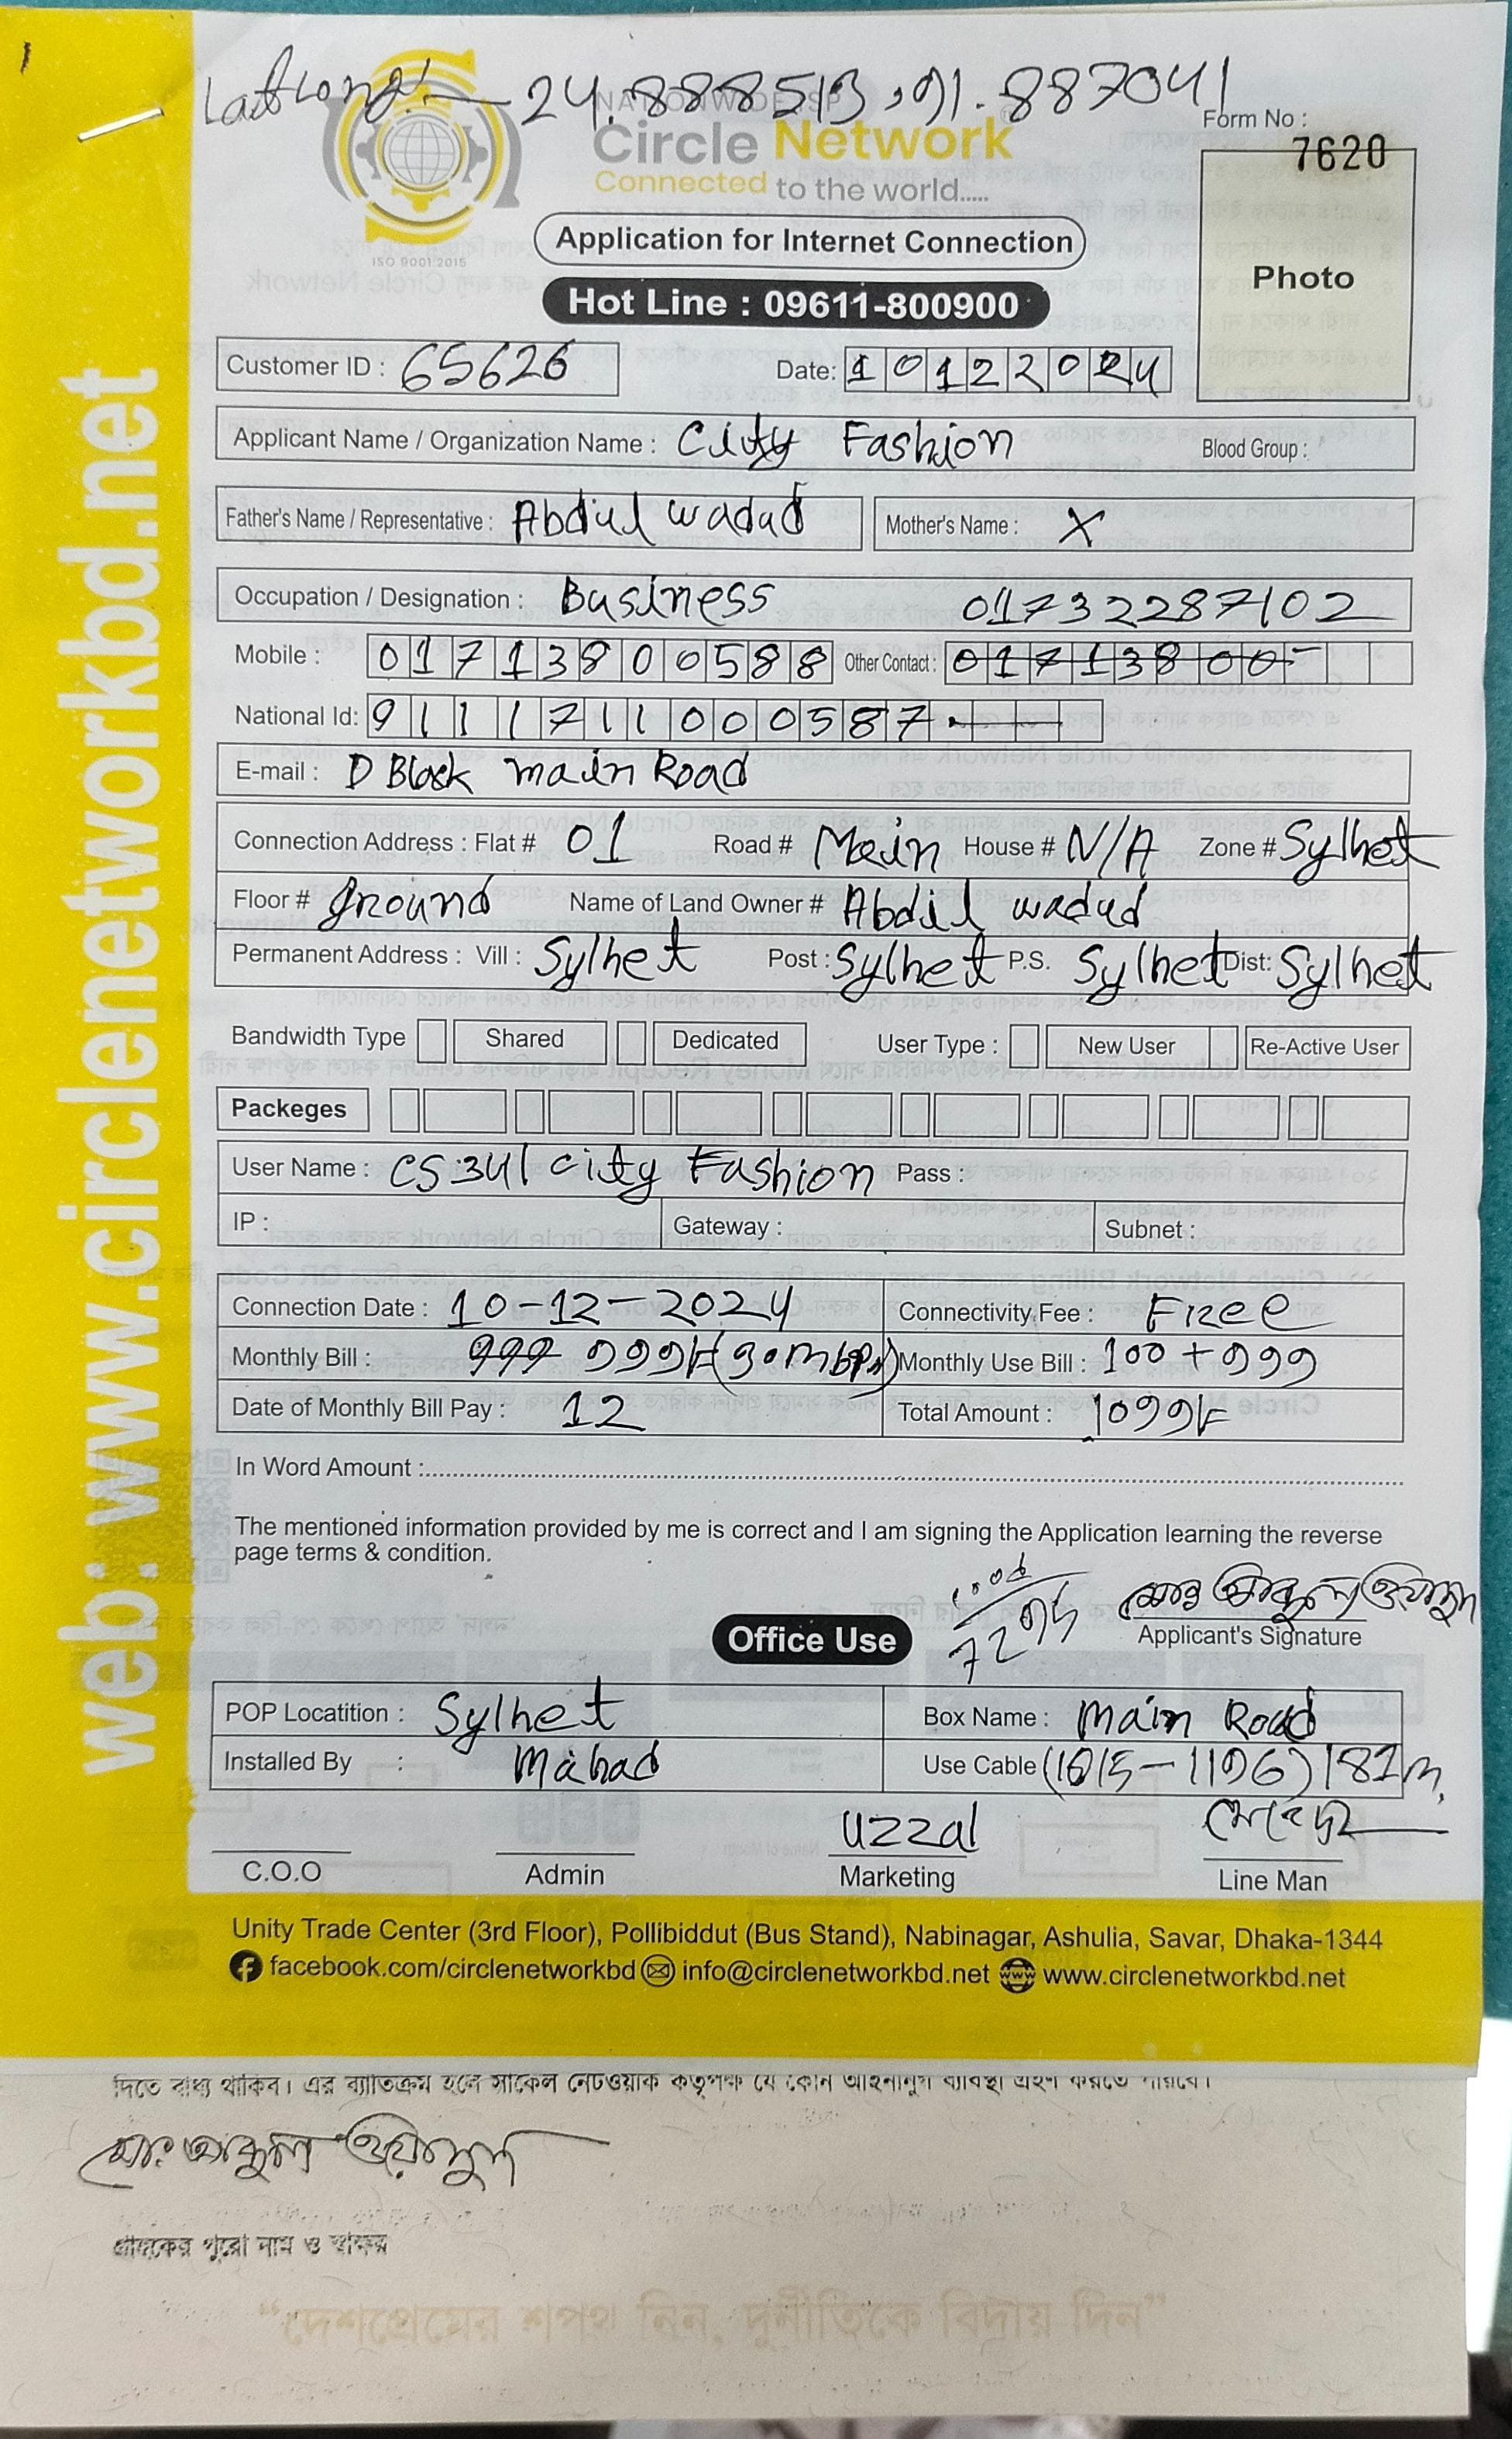 Lat Long:— 24.888513, 91.887041
NATIONWIDE ISP
Circle Network
Connected to the world.....
ISO 9001:2015
Form No :
7620
Photo
Application for Internet Connection
Hot Line : 09611-800900
Customer ID : 65626 Date: 10122024
Applicant Name / Organization Name : City Fashion Blood Group :
Father's Name / Representative : Abdul wadud Mother's Name : X
Occupation / Designation : Business 01732287102
Mobile : 01713800588 Other Contact : 01713800-
National Id: 9111711000587
E-mail : D Block main Road
Connection Address : Flat # 01 Road # Main House # N/A Zone # Sylhet
Floor # Ground Name of Land Owner # Abdul wadud
Permanent Address : Vill : Sylhet Post : Sylhet P.S. Sylhet Dist: Sylhet
Bandwidth Type Shared Dedicated User Type : New User Re-Active User
Packeges
User Name : CS341 City Fashion Pass :
IP : Gateway : Subnet :
Connection Date : 10-12-2024 Connectivity Fee : Free
Monthly Bill : 999 999/= (30mbps) Monthly Use Bill : 100 + 999
Date of Monthly Bill Pay : 12 Total Amount : 1099/=
In Word Amount :
The mentioned information provided by me is correct and I am signing the Application learning the reverse
page terms & condition.
মোঃ আব্দুল ওয়াদুদ
Applicant's Signature
Office Use
POP Locatition : Sylhet Box Name : Main Road
Installed By : Mahad Use Cable (1015-1196) 181m
Uzzal
C.O.O Admin Marketing Line Man
Unity Trade Center (3rd Floor), Pollibiddut (Bus Stand), Nabinagar, Ashulia, Savar, Dhaka-1344
facebook.com/circlenetworkbd info@circlenetworkbd.net www.circlenetworkbd.net
web: www.circlenetworkbd.net
দিতে বাধ্য থাকিব। এর ব্যাতিক্রম হলে সার্কেল নেটওয়ার্ক কর্তৃপক্ষ যে কোন আইনানুগ ব্যবিস্থা গ্রহণ করতে পারবে।
মোঃ আব্দুল ওয়াদুদ
গ্রাহকের পুরো নাম ও স্বাক্ষর
“দেশপ্রেমের শপথ নিন, দুর্নীতিকে বিদায় দিন”